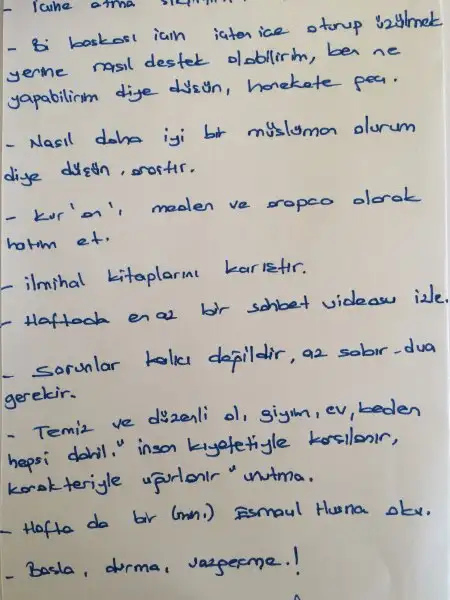 - İçine atma
- Bi başkası için içten içe oturup üzülmek
yerine nasıl destek olabilirim, ben ne
yapabilirim diye düşün, harekete geç.
- Nasıl daha iyi bir müslüman olurum
diye düşün, araştır.
- Kur'an'ı, mealen ve arapça olarak
hatim et.
- ilmihal kitaplarını karıştır.
- Haftada en az bir sohbet videosu izle.
- Sorunlar kalıcı değildir, az sabır-dua
gerekir.
- Temiz ve düzenli ol, giyim, ev, beden
hepsi dahil. "insan kıyafetiyle karşılanır,
karakteriyle uğurlanır" unutma.
- Hafta da bir (min.) Esmaul Husna oku.
- Başla, durma, vazgeçme.!